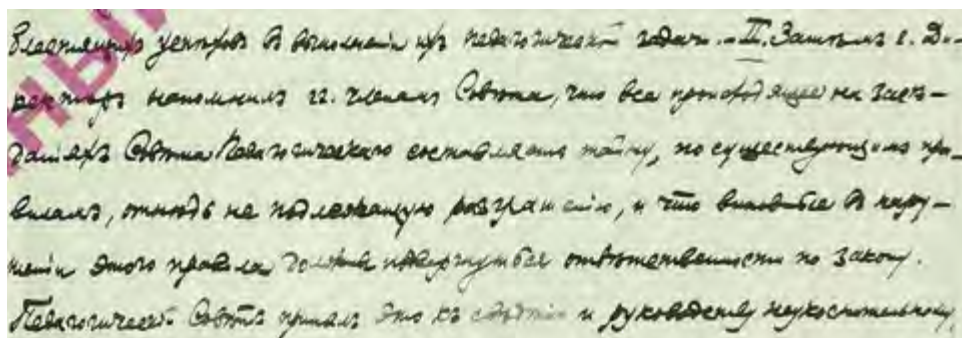 блестящихъ успѣховъ въ выполненіи ихъ педагогической задачи. – II. Затѣмъ г. Ди-
ректоръ напомнилъ гг. членамъ Совѣта, что все происходящее на засѣ-
даніяхъ Совѣта Педагогическаго составляетъ тайну, по существующимъ пра-
виламъ, отнюдь не подлежащую разглашенію, и что виновные въ нару-
шеніи этого правила должны подвергнуться отвѣтственности по закону.
Педагогическій Совѣтъ принялъ это къ свѣдѣнію и руководству неукоснительному,
НЫЙ